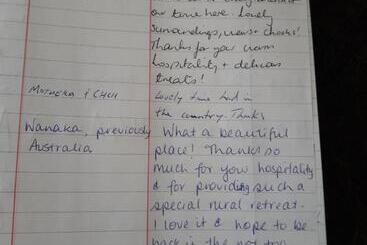 our time here. Lovely
surroundings, views + chooks!
Thanks for your warm
hospitality + delicious
treats!
MOTUEKA + CHCH
Lovely time had in
the country. Thanks
Wanaka, previously
Australia
What a beautiful
place! Thanks so
much for your hospitality
& for providing such a
special rural retreat.
I love it & hope to be
back in the not too